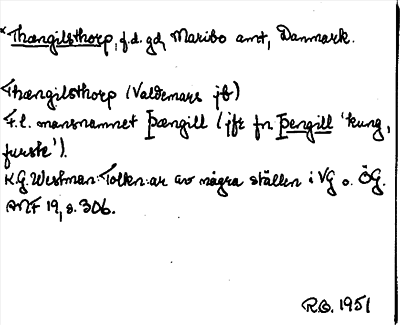 *Thængilsthorp, f.d. gd, Maribo amt, Danmark.
Thængilsthorp (Valdemars jb)
F.l. mansnamnet Þængill (jfr fn þengill 'kung,
furste').
K.G. Westman: Tolkn:ar av några ställen i VG o. ÖG.
ANF 19, s. 306.
R.O. 1951